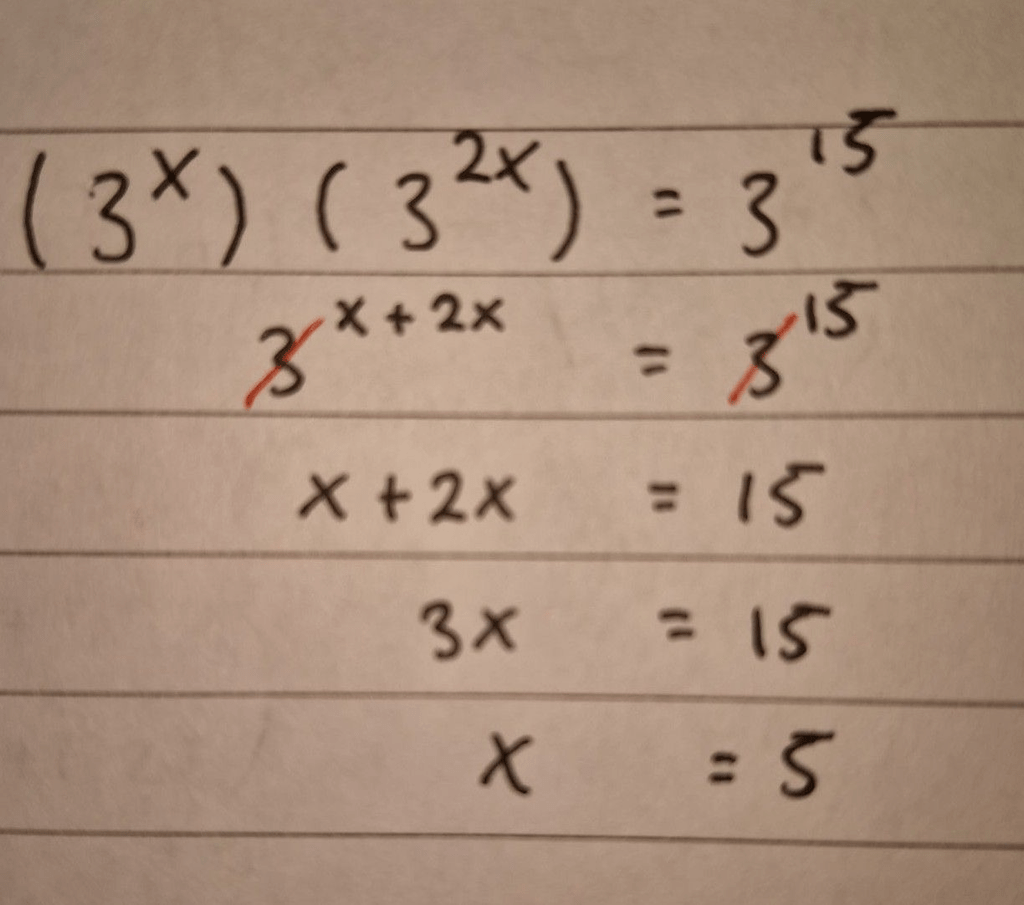 (3^x) (3^2x) = 3^15
3^x+2x = 3^15
x + 2x = 15
3x = 15
x = 5